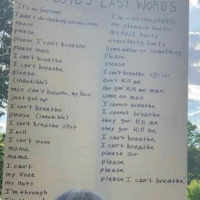 LAST WORDS
It's my face man
please
please
Please I can't breathe
please man
I can't breathe
I can't breathe
Please
(inaudible)
man can't breathe, my face
Just get up
I can't breathe
please (inaudible)
I can't breathe shit
I will
I can't move
mama
mama
I can't
my knee
my nuts
I'm through
I'm claustrophobic
My stomach hurts
my neck hurts
everything hurts
some water or something
please
please
I can't breathe officer
don't kill me
they gon' kill me man
come on man
I cannot breathe
I cannot breathe
they gon' kill me
they gon' kill me
I can't breathe
I can't breathe
please sir
please
please
please
please I can't breathe